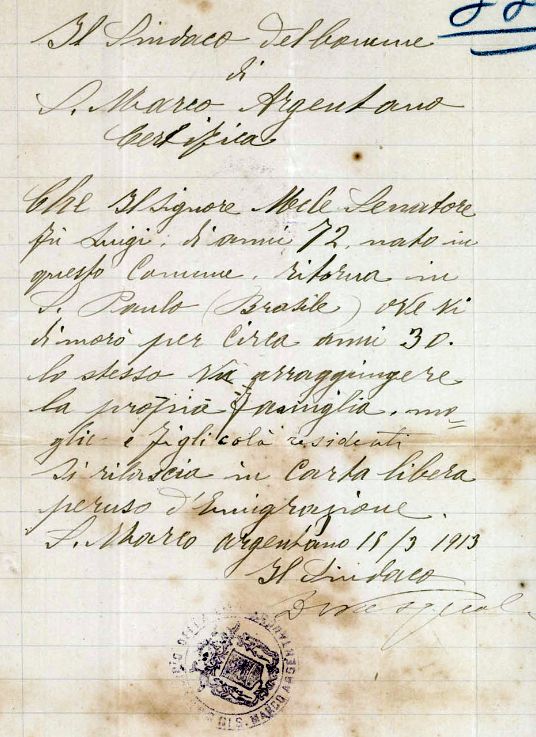 Il Sindaco del Comune
di
S. Marco Argentano
Certifica
Che Il Signore Mele Senatore
fù Luigi, di anni 72, nato in
questo Comune, ritorna in
S. Paulo (Brasile) ove vi
dimorò per circa anni 30.
lo stesso va arraggiungere
la propria famiglia, mo=
glie e figli colà residenti
Si rilascia in carta libera
peruso d'Emigrazione.
S. Marco argentano 15/3 1913
Il Sindaco
S. MARCO ARGENTANO